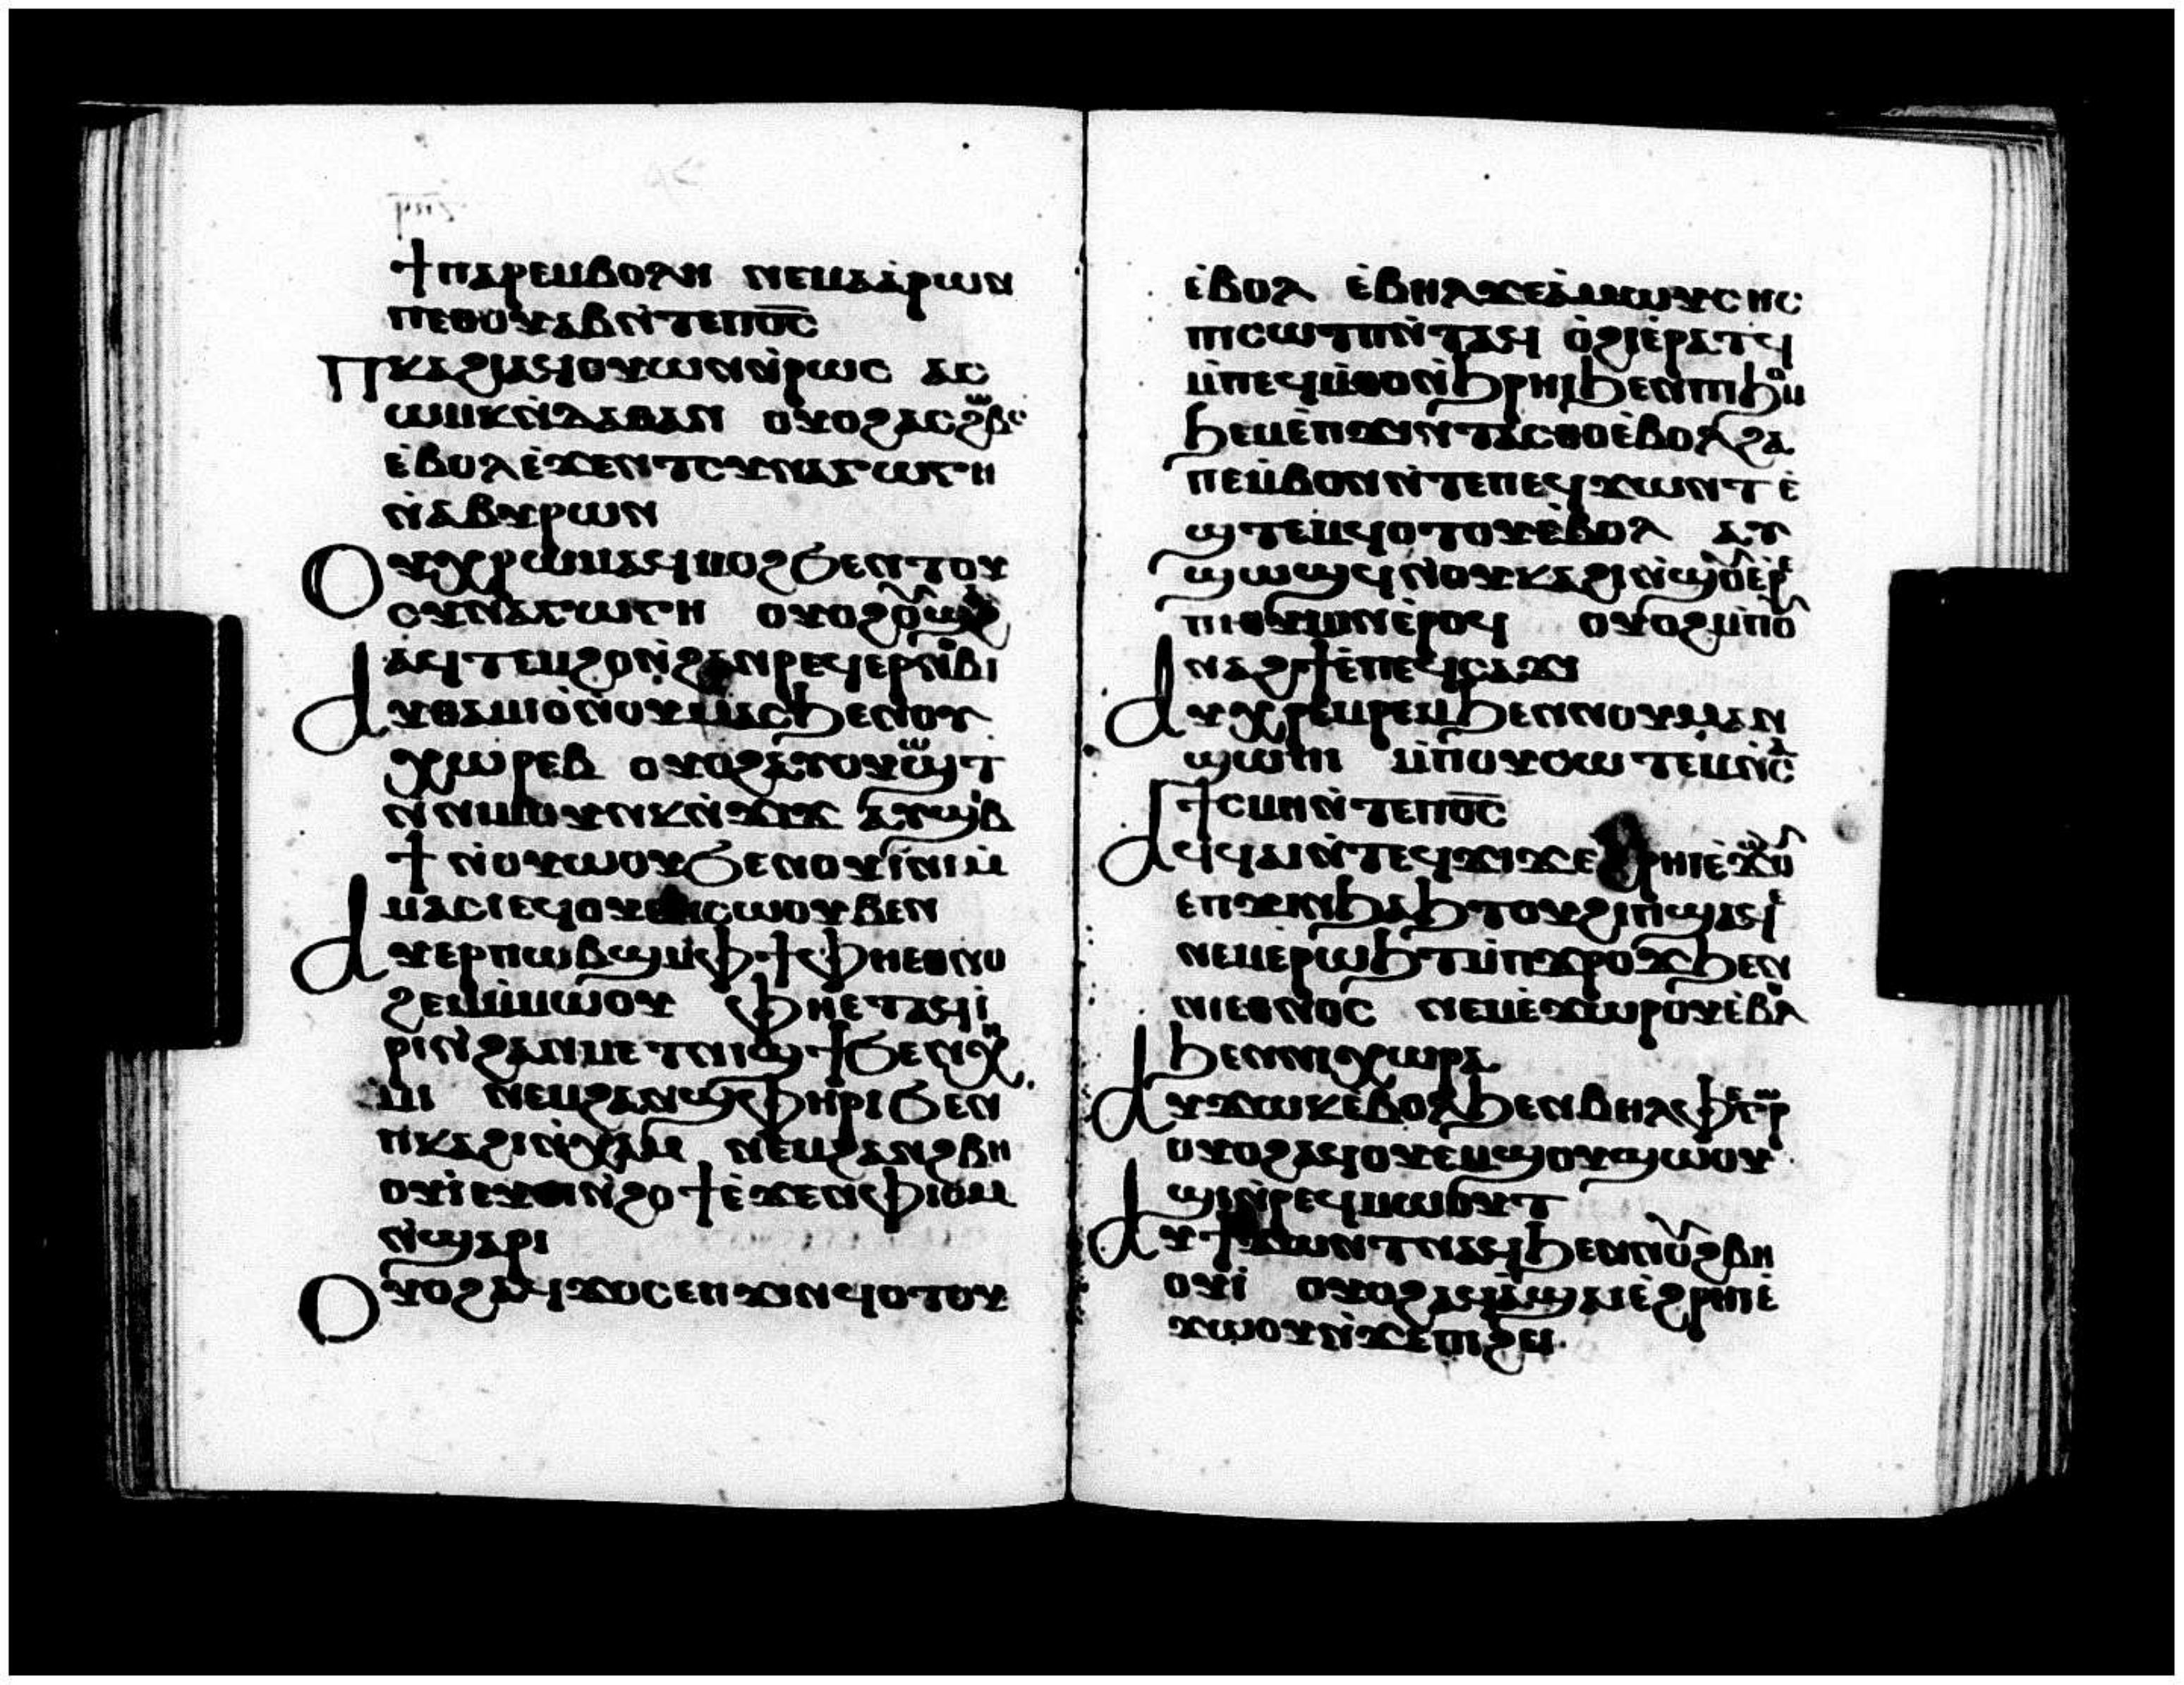 ϯⲡⲁⲣⲉⲙⲃⲟⲗⲏ ⲛⲉⲙⲁ̀ⲁ̀ⲣⲱⲛ
ⲡⲉⲑⲟⲩⲁⲃⲛ̀ⲧⲉⲡⲟ̅ⲥ̅
Ⲡⲕⲁϩⲓⲁϥⲟⲩⲱⲛⲛ̀ⲣⲱϥ ⲁϥ
ⲱⲙⲕⲛ̀ⲇⲁⲑⲁⲛ ⲟⲩⲟϩⲁϥϩⲱⲃⲥ
ⲉ̀ⲃⲟⲗⲉ̀ϫⲉⲛⲧⲥⲩⲛⲁⲅⲱⲅⲏ
ⲛ̀ⲁⲃⲩⲣⲱⲛ
Ⲟⲩⲭⲣⲱⲙⲁϥⲙⲟϩϭⲉⲛⲧⲟⲩ
ⲥⲩⲛⲁⲅⲱⲅⲏ ⲟⲩⲟϩⲟⲩϣⲁϩ
ⲁϥⲧⲉⲙϩⲟⲛ̀ϩⲁⲛⲣⲉϥⲉⲣⲛⲟⲃⲓ
Ⲁⲩⲑⲁⲙⲓⲟ̀ⲛ̀ⲟⲩⲙⲁⲥϧⲉⲛⲟⲩ
ⲭⲱⲣⲉⲃ ⲟⲩⲟϩⲁⲩⲟⲩⲱϣⲧ
ⲛ̀ⲛⲓⲙⲟⲩⲛⲕⲛ̀ϫⲓϫ ⲁⲩϣⲓⲃ
ϯ ⲛ̀ⲟⲩⲱⲟⲩϭⲉⲛⲟⲩⲓ̀ⲛⲓⲙ̀
ⲙⲁⲥⲓⲉϥⲟⲩⲉⲙⲥⲱⲟⲩⲃⲉⲛ
Ⲁⲩⲉⲣⲡⲱⲃϣⲙ̀ⲫϯⲫⲏⲉⲑⲛⲟ
ϩⲉⲙⲙ̀ⲙⲱⲟⲩ ⲫⲏⲉⲧⲁϥⲓ̀
ⲣⲓⲛ̀ϩⲁⲛⲙⲉⲧⲛⲓϣϯϭⲉⲛⲭⲏ
ⲙⲓ ⲛⲉⲙϩⲁⲛϣⲫⲏⲣⲓϭⲉⲛ
ⲡⲕⲁϩⲓⲛ̀ⲭⲁⲙ ⲛⲉⲙϩⲁⲛϩⲃⲏ
ⲟⲩⲓ̀ⲉⲩⲟⲓⲛ̀ϩⲟϯⲉ̀ϫⲉⲛⲫⲓⲟⲙ
ⲛ̀ϣⲁⲣⲓ
Ⲟⲩⲟϩⲁϥϫⲟⲥⲉⲡϫⲓⲛϥⲟⲧⲟⲩ
ⲉ̀ⲃⲟⲗ ⲉ̀ⲃⲏⲗϫⲉⲁ̀ⲙⲱⲩⲥⲏⲥ
ⲡⲓⲥⲱⲧⲡⲛ̀ⲧⲁϥ ⲟ̀ϩⲓⲉ̀ⲣⲁⲧϥ
ⲙ̀ⲡⲉϥⲙ̀ⲑⲟⲛ̀ϧⲣⲏⲓϧⲉⲛⲡⲓϧⲟⲙ
ϧⲉⲙⲉ̀ⲡϫⲓⲛⲧⲁⲥⲑⲟⲉ̀ⲃⲟⲗϩⲁ
ⲡⲉⲙ̀ⲃⲟⲛⲛ̀ⲧⲉⲡⲉϥϫⲱⲛⲧ ⲉ̀
ϣⲧⲉⲙϥⲟⲧⲟⲩⲉ̀ⲃⲟⲗ ⲁⲩ
ϣⲱϣϥⲛ̀ⲟⲩⲕⲁϩⲓⲛ̀ϣⲟⲩⲉⲣⲉ
ⲡⲓⲑⲩⲙⲓⲛⲉ̀ⲣⲟϥ ⲟⲩⲟϩⲙ̀ⲡⲟⲩ
ⲛⲁϩϯⲉ̀ⲡⲉϥⲥⲁϫⲓ
Ⲁⲩⲭⲣⲉⲙⲣⲉⲙϧⲉⲛⲛⲟⲩⲙⲁⲛ
ϣⲱⲡⲓ ⲙ̀ⲡⲟⲩⲥⲱⲧⲉⲙⲛ̀ⲥⲁ
ϯⲥⲙⲏⲛ̀ⲧⲉⲡⲟ̅ⲥ̅
Ⲁϥϥⲁⲓⲛ̀ⲧⲉϥϫⲓϫⲉϩⲣⲏⲓⲉ̀ϫⲱⲟⲩ
ⲉⲡϫⲓⲛϧⲁϧⲧⲟⲩϩⲓⲡϣⲁϥⲉ
ⲛⲉⲙⲉ̀ⲣⲱϧⲧⲙ̀ⲡϫⲣⲟϫϧⲉⲛ
ⲛⲓⲉⲑⲛⲟⲥ ⲛⲉⲙⲉ̀ϫⲱⲣⲟⲩⲉ̀ⲃⲟⲗ
ϧⲉⲛⲛⲓⲭⲱⲣⲁ
Ⲁⲩϫⲱⲕⲉⲃⲟⲗϧⲉⲛⲃⲉⲗⲫⲉⲅⲱⲣ
ⲟⲩⲟϩⲁϥⲟⲩⲉⲙϣⲟⲩϣⲱⲟⲩ
ϣⲓⲛ̀ⲣⲉϥⲙⲱⲟⲩⲧ
Ⲁⲩϯϫⲱⲛⲧⲛⲁϥϧⲉⲛⲛⲟⲩϩⲃⲏ
ⲟⲩⲓ̀ ⲟⲩⲟϩⲁϥⲁ̀ϣⲁⲓⲉ̀ϩⲣⲏⲓⲉ̀
ϫⲱⲟⲩⲛ̀ϫⲉⲡⲓϩⲉⲓ